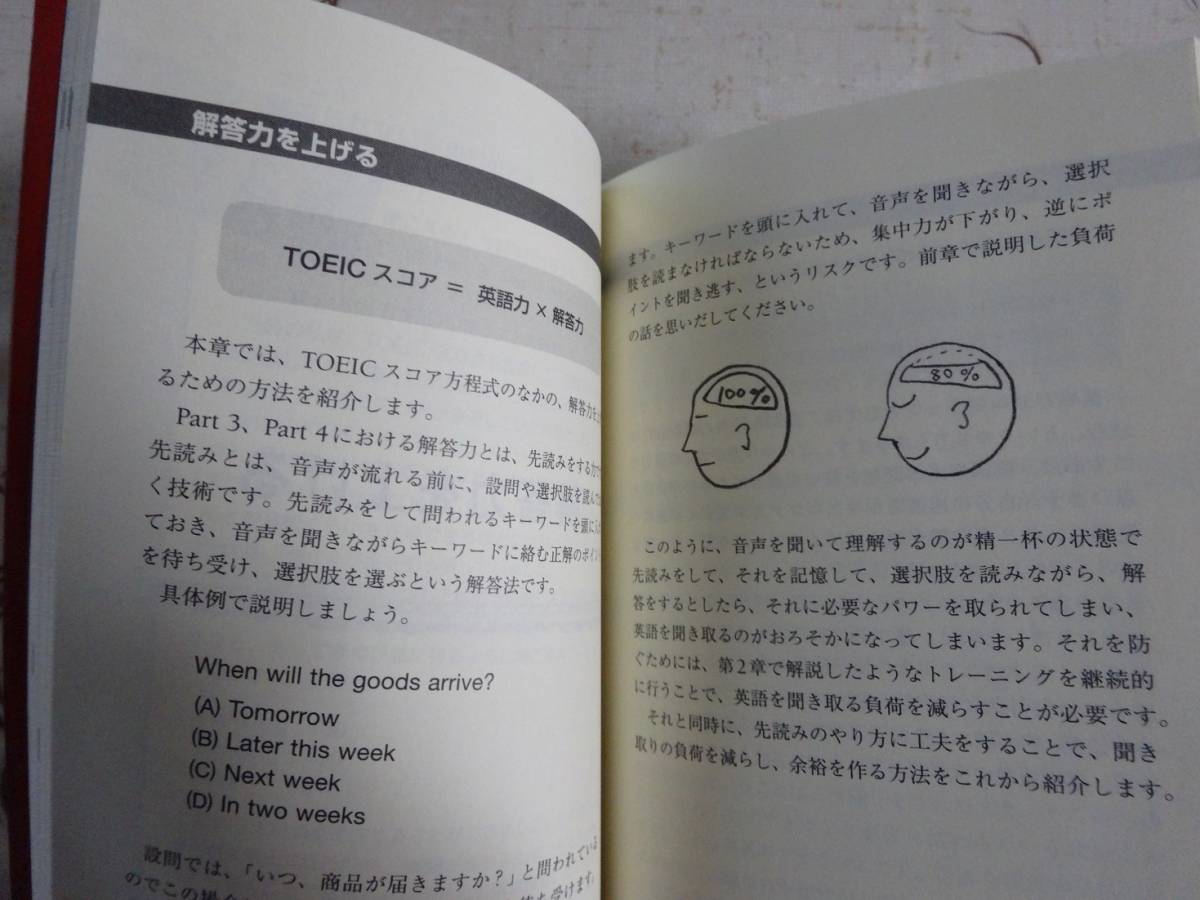 解答力を上げる
TOEIC スコア = 英語力 × 解答力
本章では、TOEIC スコア方程式のなかの、解答力を上
るための方法を紹介します。
Part 3、Part 4における解答力とは、先読みをする力
先読みとは、音声が流れる前に、設問や選択肢を読んで
く技術です。先読みをして問われるキーワードを頭に
ておき、音声を聞きながらキーワードに絡む正解のポイン
を待ち受け、選択肢を選ぶという解答法です。
具体例で説明しましょう。
When will the goods arrive?
(A) Tomorrow
(B) Later this week
(C) Next week
(D) In two weeks
設問では、「いつ、商品が届きますか？」と問われている
のでこの場
ます。キーワードを頭に入れて、音声を聞きながら、選択
肢を読まなければならないため、集中力が下がり、逆にポ
イントを聞き逃す、というリスクです。前章で説明した負荷
の話を思いだしてください。
100%
80%
このように、音声を聞いて理解するのが精一杯の状態で
先読みをして、それを記憶して、選択肢を読みながら、解
答をするとしたら、それに必要なパワーを取られてしまい、
英語を聞き取るのがおろそかになってしまいます。それを防
ぐためには、第2章で解説したようなトレーニングを継続的
に行うことで、英語を聞き取る負荷を減らすことが必要です。
それと同時に、先読みのやり方に工夫をすることで、聞き
取りの負荷を減らし、余裕を作る方法をこれから紹介します。